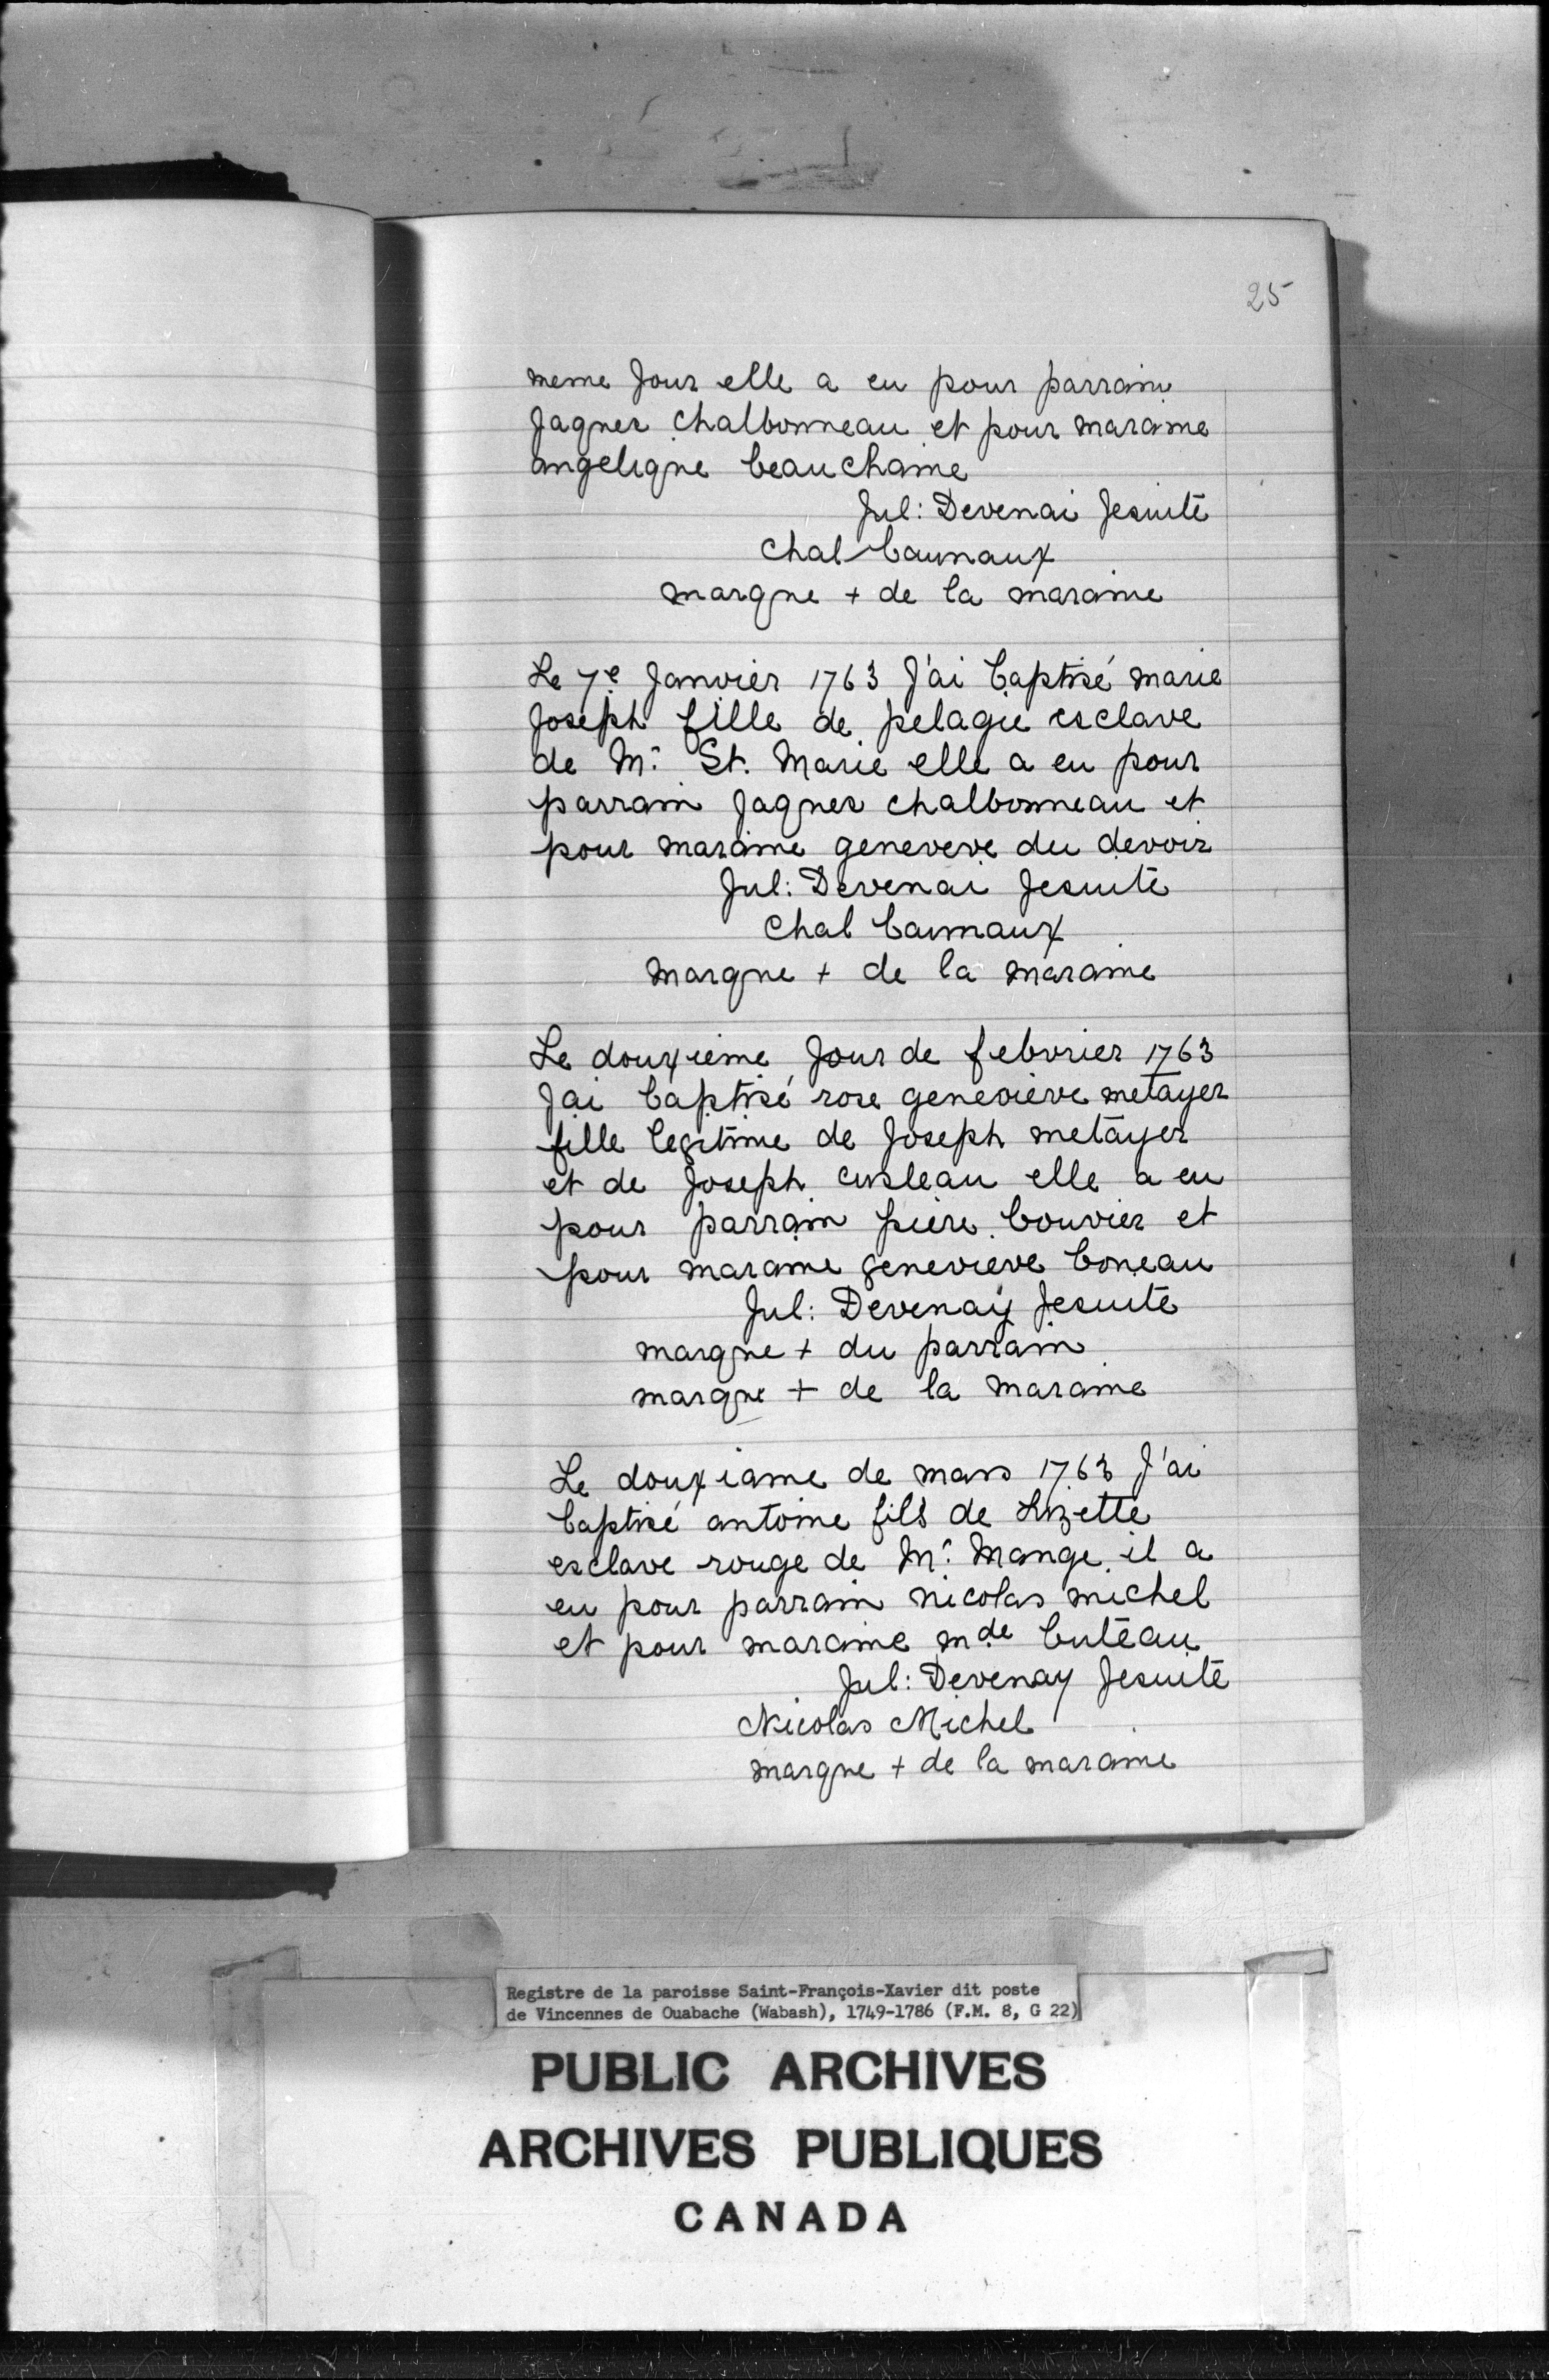 25
meme Jour elle a eu pour parrain
Jaques chalbonneau et pour maraine
angelique beauchaine
Jul: Devenai Jesuite
Chal baunaux
marque + de la maraine
Le 7e Janvier 1763 J'ai baptisé marie
Joseph fille de pelagie esclave
de Mr. St. Marie elle a eu pour
parrain Jaques chalbonneau et
pour maraine geneveve du devoir
Jul: Devenai Jesuite
Chal baunaux
marque + de la maraine
Le douxieme Jour de febvrier 1763
Jai baptisé rose genevieve metayer
fille legitime de Joseph metayer
et de Joseph cusleau elle a eu
pour parrain piere bouvier et
pour maraine genevieve boneau
Jul: Devenay Jesuite
marque + du parrain
marque + de la maraine
Le douxiame de mars 1763 J'ai
baptisé antoine fils de Lizette
esclave rouge de Mr. Mange il a
eu pour parrain nicolas michel
et pour maraine mde buteau
Jul: Devenay Jesuite
Nicolas Michel
marque + de la maraine
Registre de la paroisse Saint-François-Xavier dit poste
de Vincennes de Ouabache (Wabash), 1749-1786 (F.M. 8, G 22)
PUBLIC ARCHIVES
ARCHIVES PUBLIQUES
CANADA